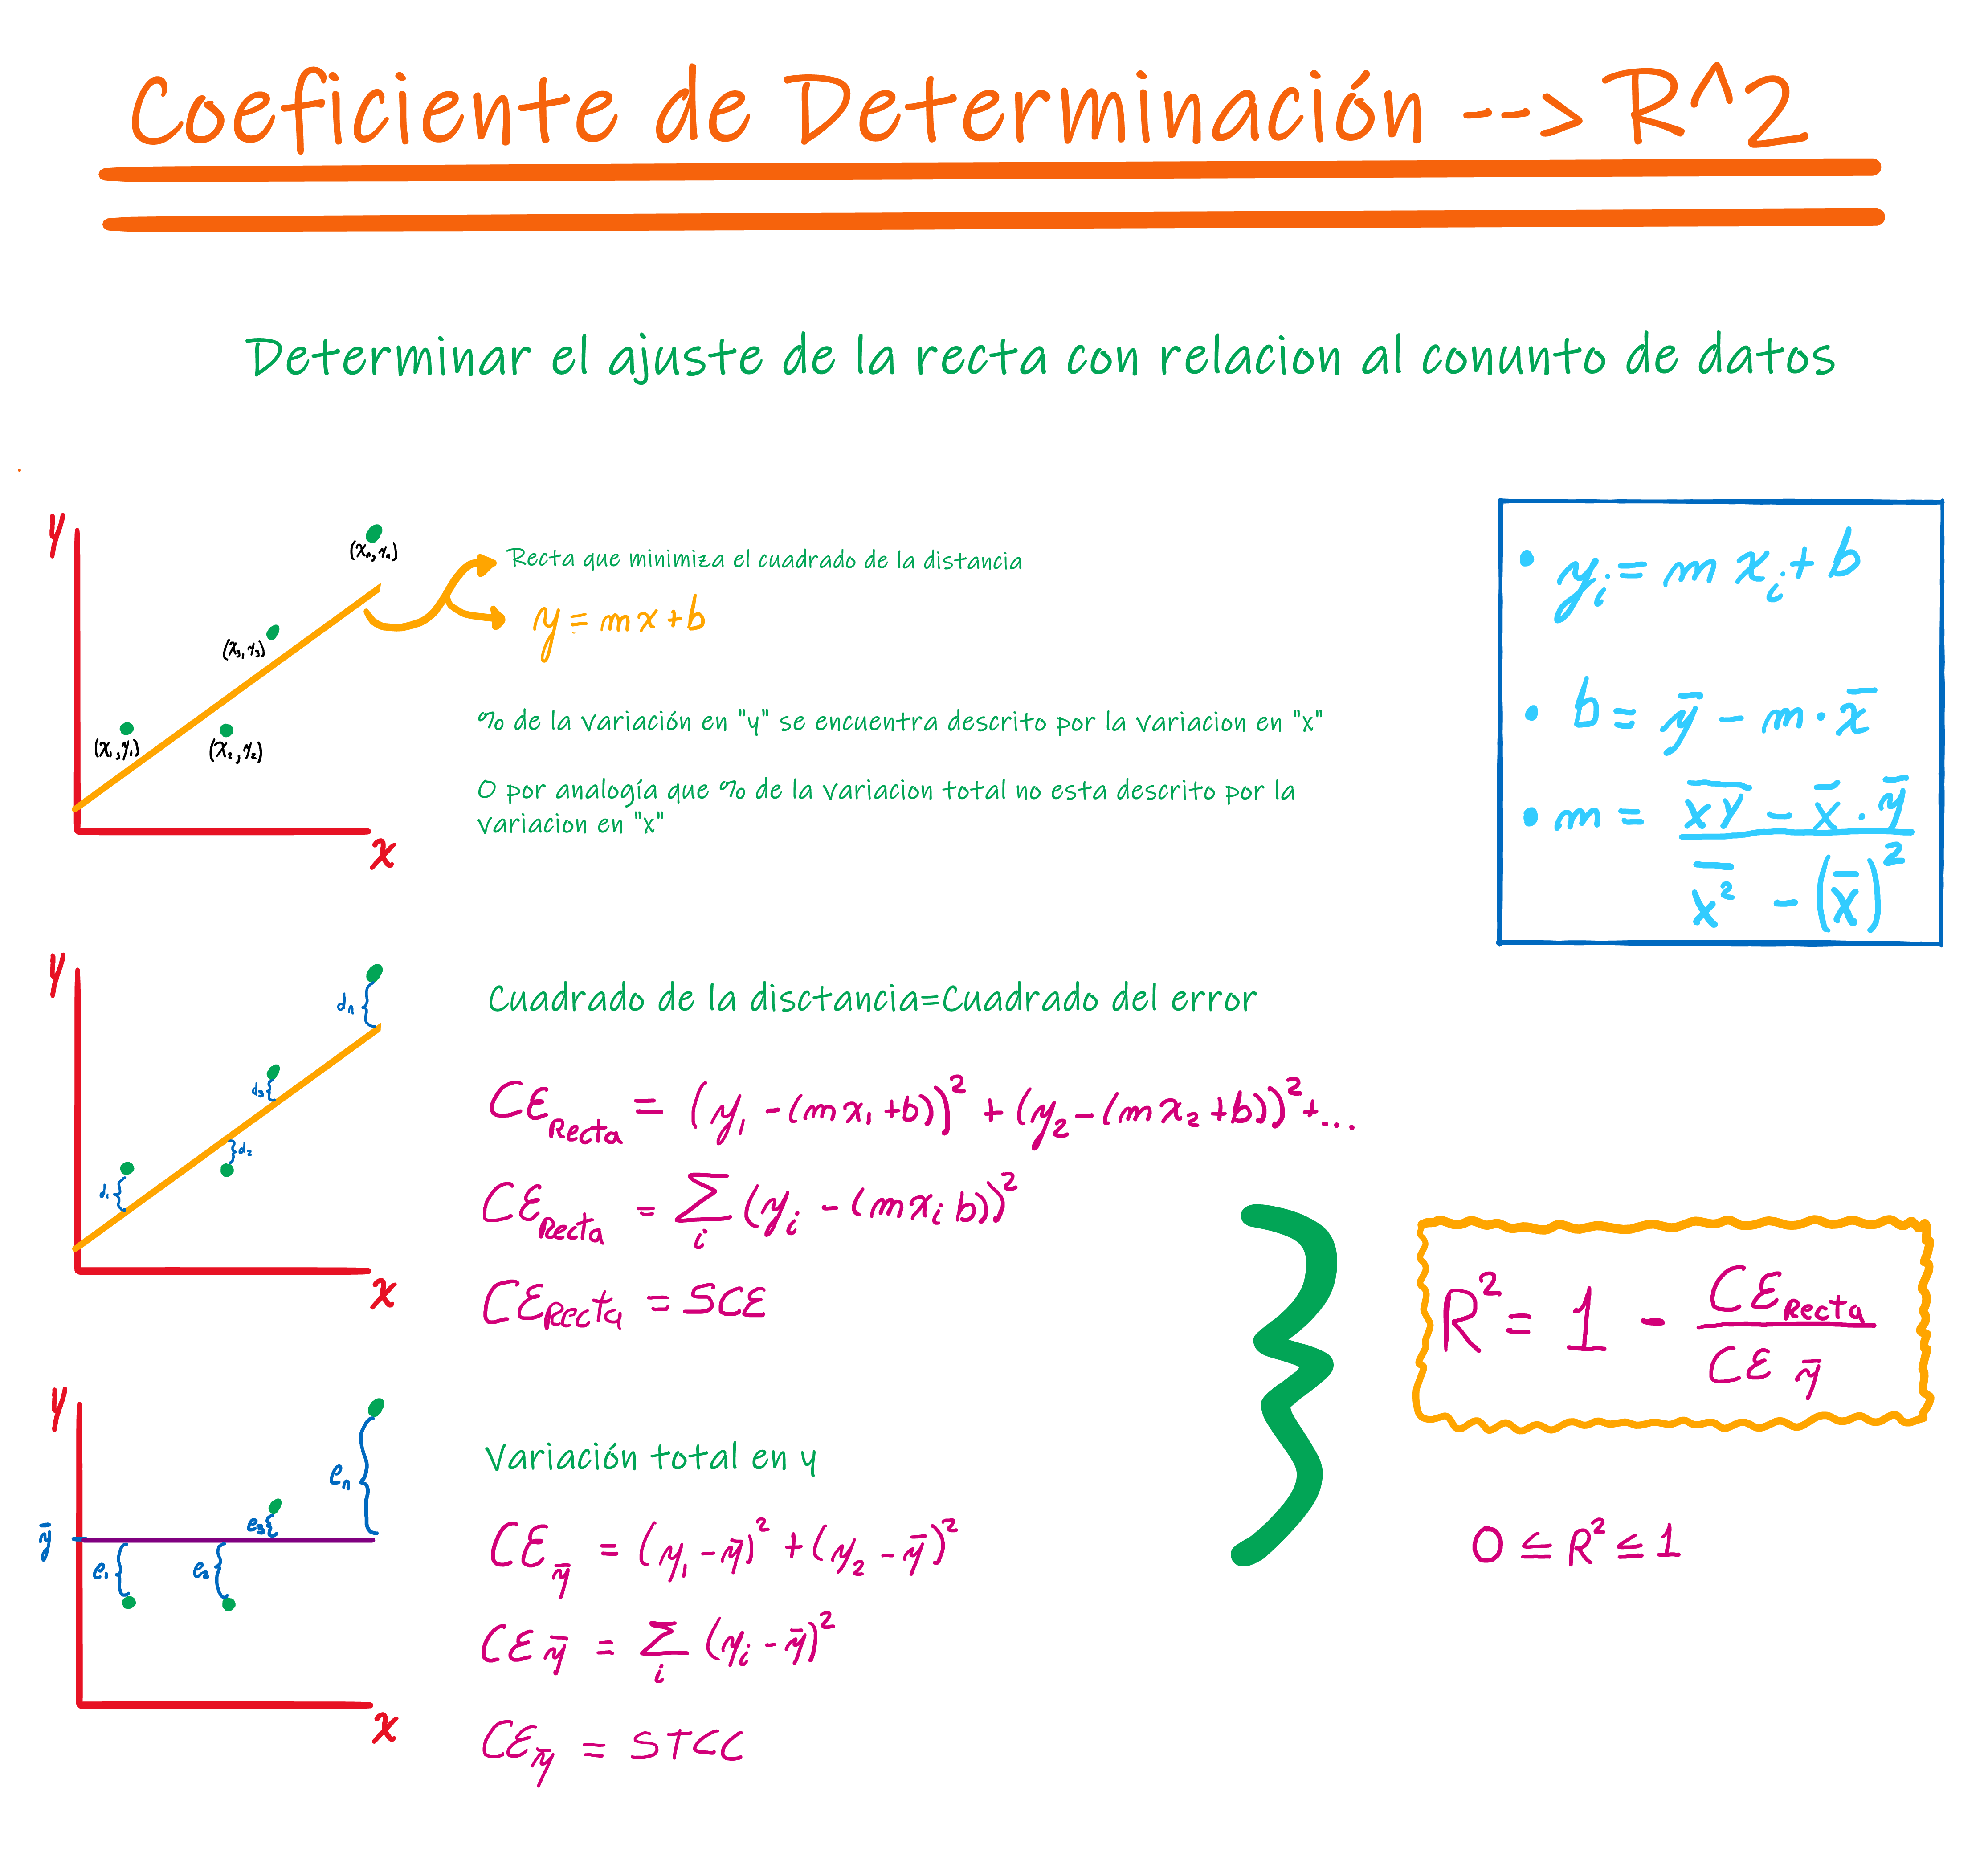 Coeficiente de Determinación --> R^2
Determinar el ajuste de la recta con relacion al conunto de datos
y
(x₁, y₁)
(x₂, y₂)
(x₃, y₃)
(xₙ, yₙ)
x
Recta que minimiza el cuadrado de la distancia
y = mx + b
% de la variación en "y" se encuentra descrito por la variacion en "x"
O por analogía que % de la variacion total no esta descrito por la
variacion en "x"
• yᵢ = m xᵢ + b
• b = ȳ - m · x̄
• m = (x̅y̅ - x̄ · ȳ) / (x̅²̅ - (x̄)²)
y
d₁
d₂
d₃
dₙ
x
Cuadrado de la disctancia=Cuadrado del error
CE_Recta = (y₁ - (mx₁ + b))² + (y₂ - (mx₂ + b))² + ...
CE_Recta = Σᵢ (yᵢ - (mxᵢ b))²
CE_Recta = SCE
R² = 1 - CE_Recta / CE_ȳ
0 ≤ R² ≤ 1
y
ȳ
e₁
e₂
e₃
eₙ
x
Variación total en y
CE_ȳ = (y₁ - ȳ)² + (y₂ - ȳ)²
CE_ȳ = Σᵢ (yᵢ - ȳ)²
CE_ȳ = STCC